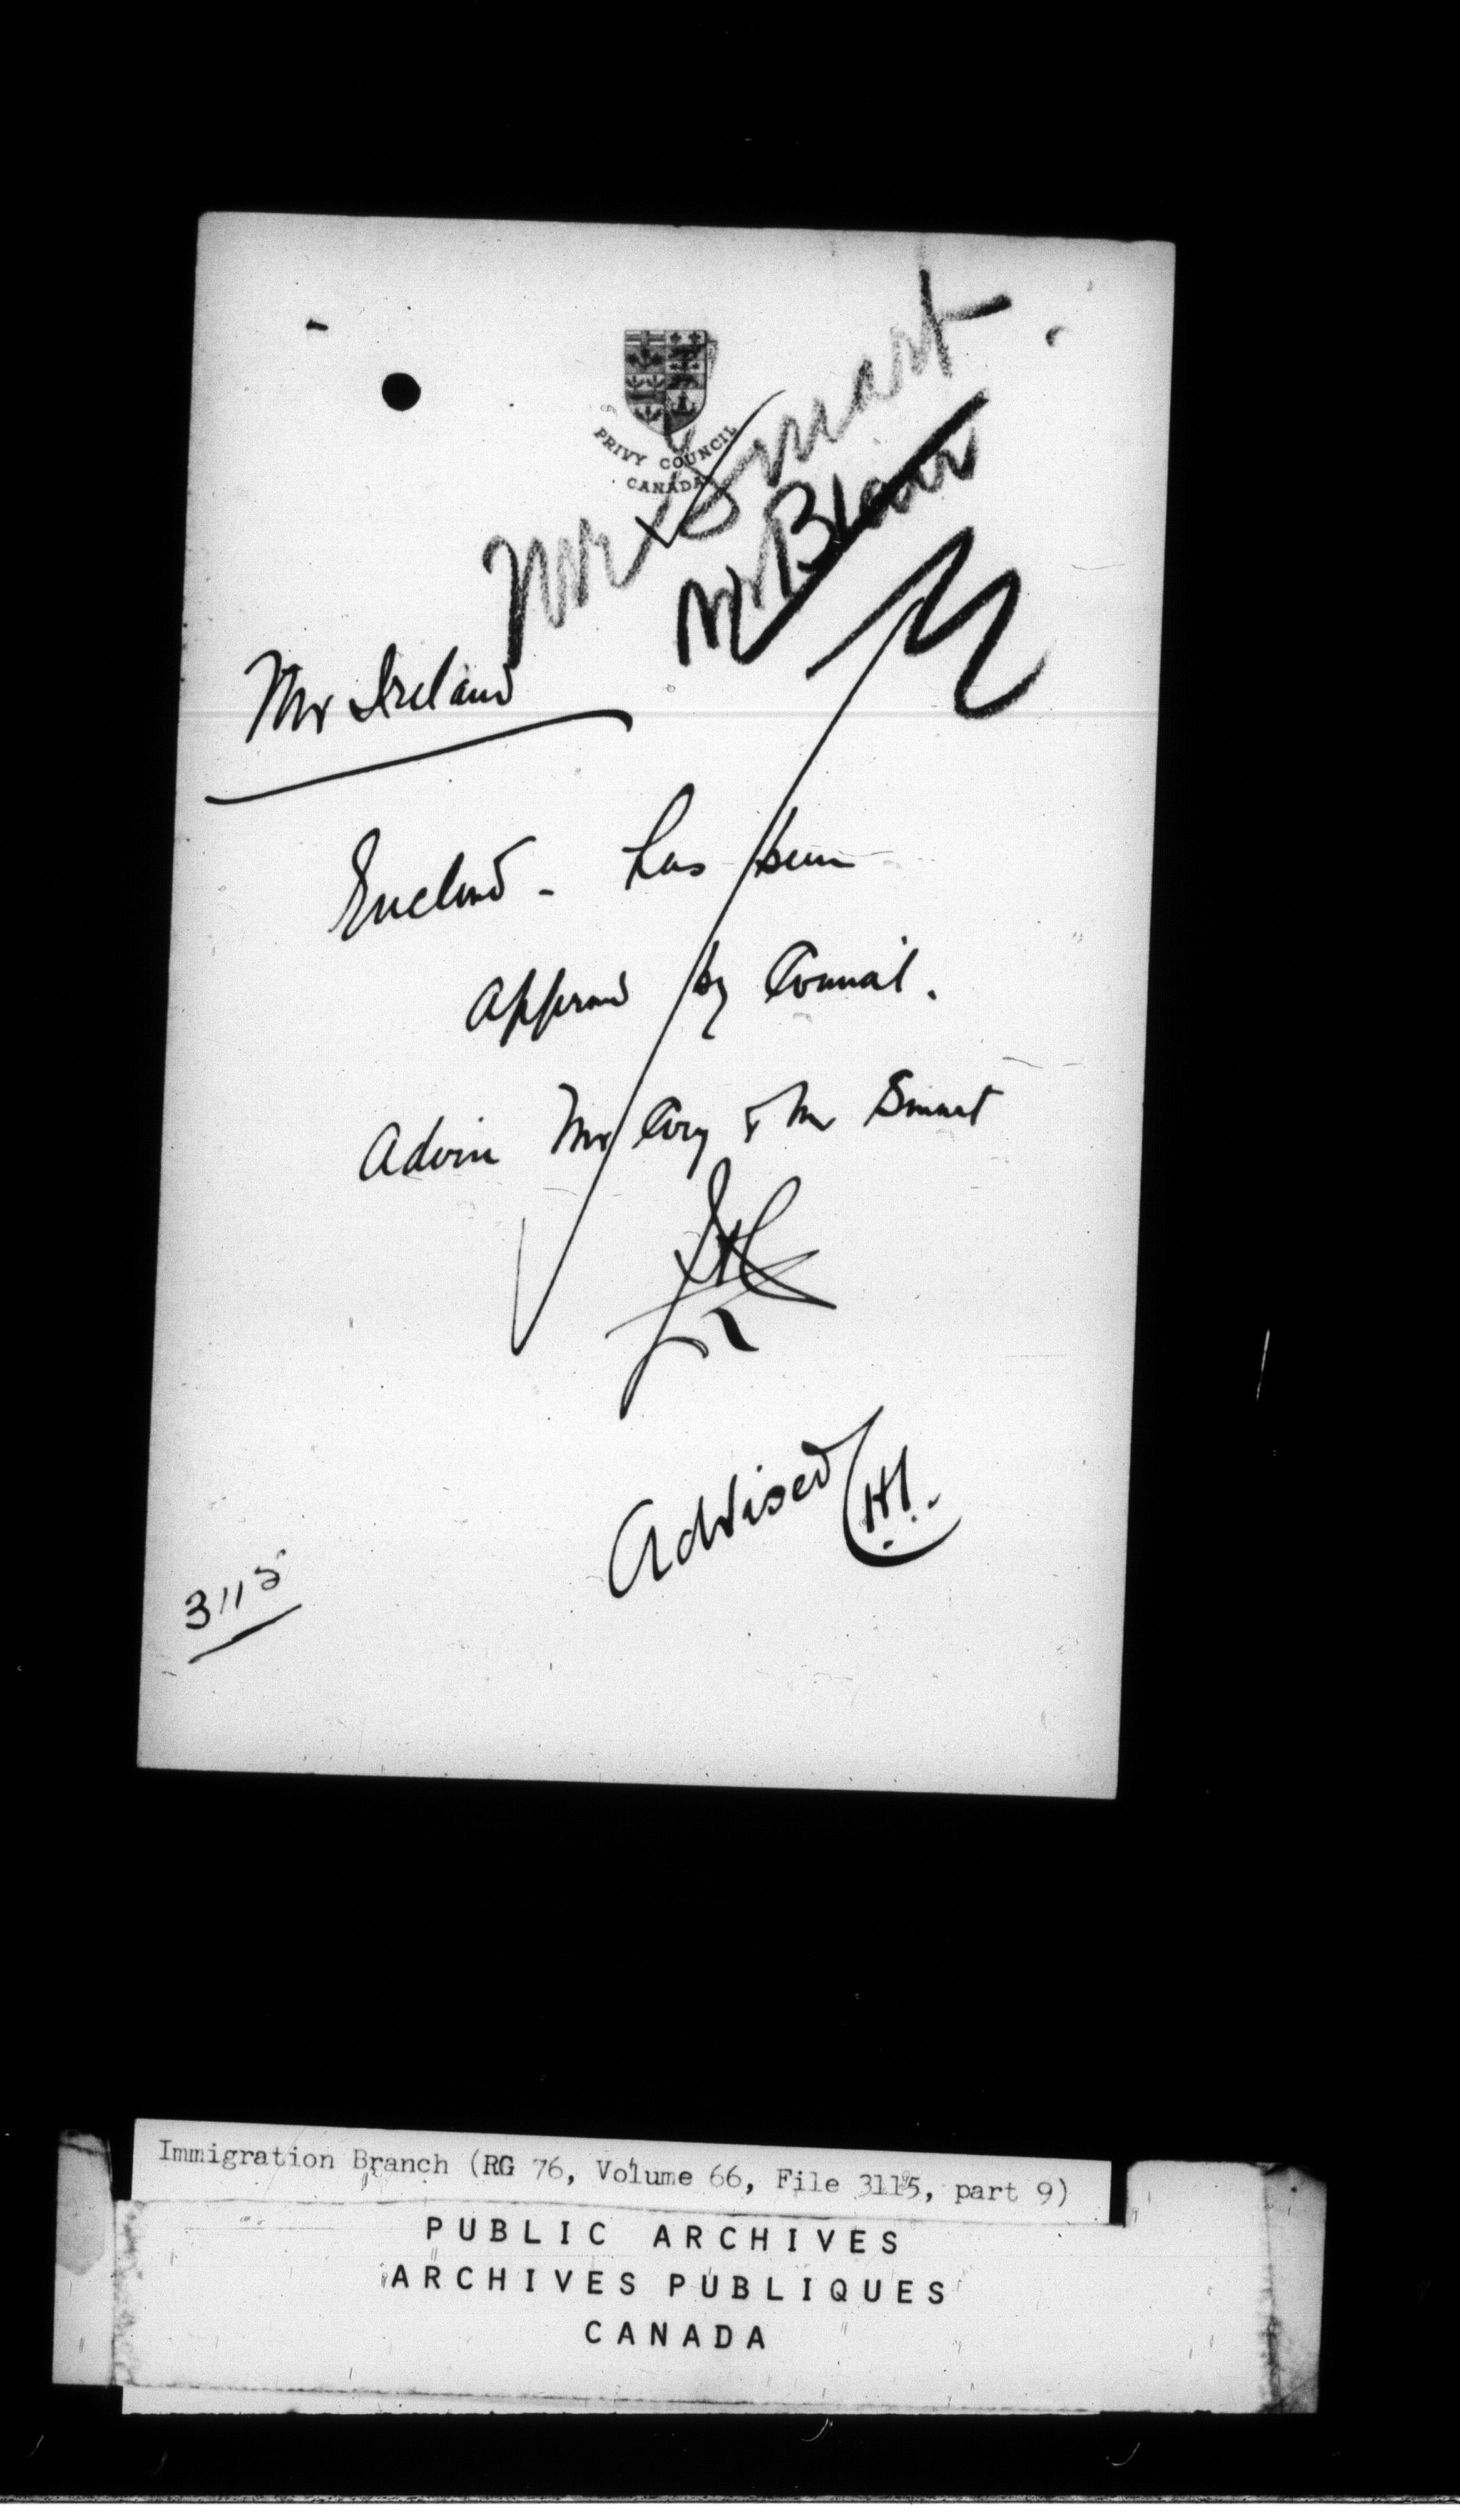 PRIVY COUNCIL
CANADA
Mr Smart
Mr Blair
Mr Ireland
Enclosed - has been
approved by Council.
Advise Mr Cory & Mr Smart
Advised
H.I.
3115
Immigration Branch (RG 76, Volume 66, File 3115, part 9)
PUBLIC ARCHIVES
ARCHIVES PUBLIQUES
CANADA